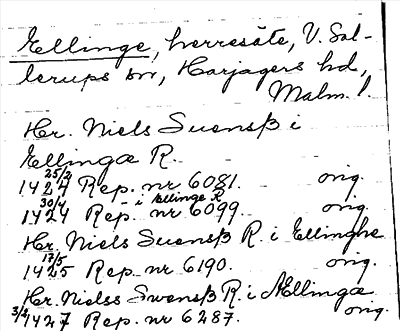 Ellinge, herresäte, V. Sal-
lerups sn, Harjagers hd,
Malm. l.
Hr. Niels Suensß i
Ellingæ R.
25/2 1424 Rep. nr 6081. orig.
i Ællinge R
30/4 1424 Rep. nr 6099. orig.
Hr. Niels Suensß R. i Ellinghe
17/5 1425 Rep. nr 6190. orig.
Hr. Nielss Swensß R. i Ællingæ
3/2 1427 Rep. nr 6287. orig.